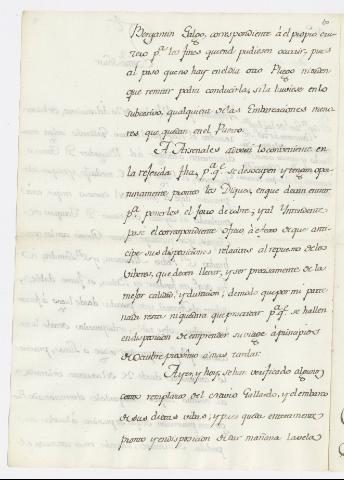 60
Bergantin Galgo, correspondiente á el propio cru-
cero pa. los fines que end pudiesen ocurrir, pues
al paso que no hay en el dia otro Pliego ni orden
que remitir podrá conducirla, si la huviese en lo
subcesivo, qualquiera de las Embarcaciones meno-
res que quedan en el Puerto.
A Arsenales lo conveniente en
la referida fha, pa. qe. se desocupen y tengan opor-
tunamente prontos los Diques, en que deven entrar
pa. ponerles el forro de cobre, y al Yntendente
pase el correspondiente oficio á efecto de que anti-
cipe sus disposiciones relativas al repuesto de los
Viveres, que deven llevar, y ser precisamente de la
mejor calidad, y duracion, de modo que por mi parte
nada resta ni quedará que practicar pa. qe. se hallen
en disposicion de emprender su viage á principios
de Octubre proximo á mas tardar.
Ayer, y hoy, se han verificado algunos
cortos remplazos del Navio Gallardo, y el embarco
de sus dietas vibres, y pues queda enteramente
pronto y en disposicion de dar mañana la vela